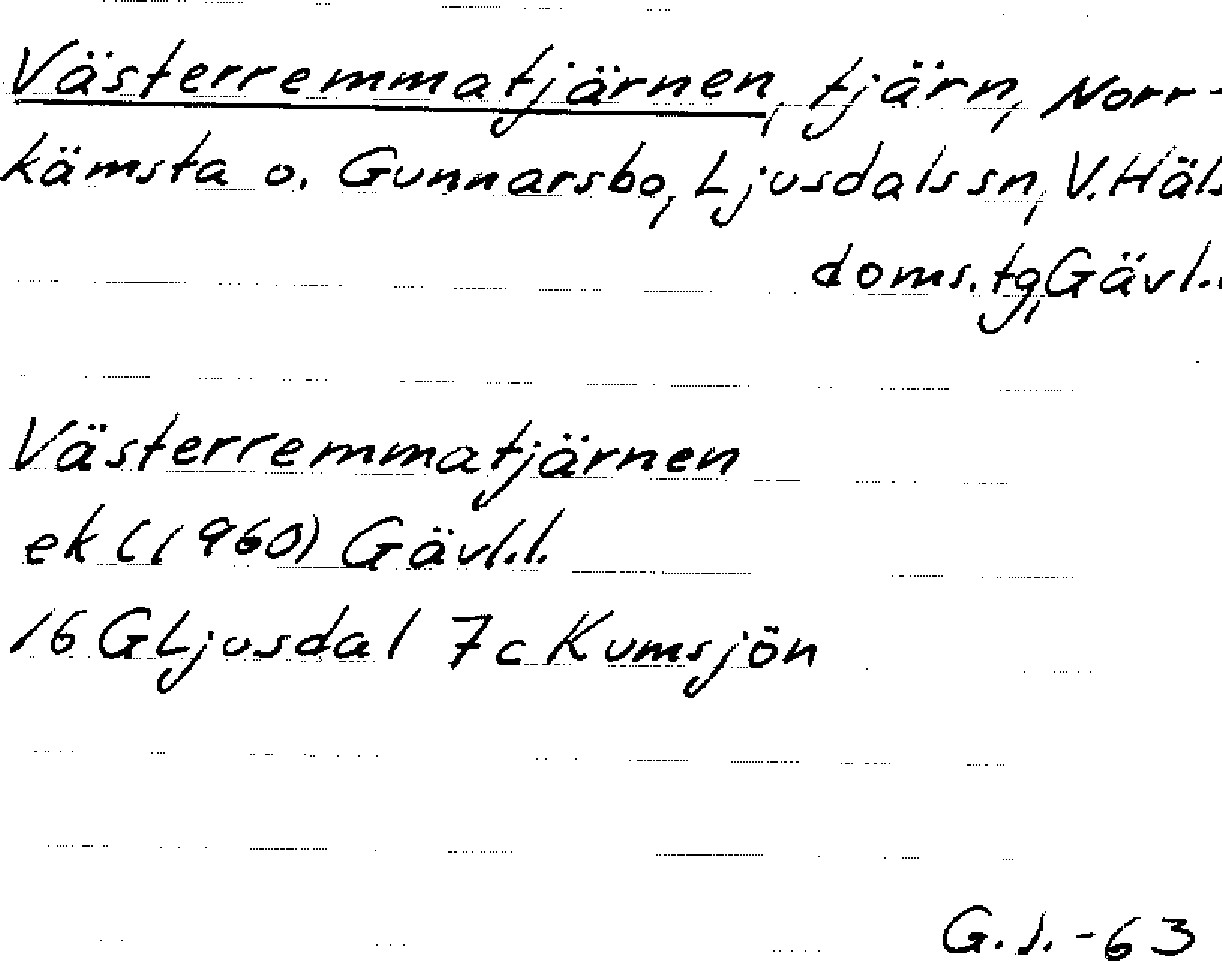 Västerremmatjärnen, tjärn, Norr-
kämsta o. Gunnarsbo, Ljusdals sn, V. Häls
doms.tg, Gävl.
Västerremmatjärnen
ek (1960) Gävl.l.
16 G Ljusdal 7c Kumsjön
G.J. -63